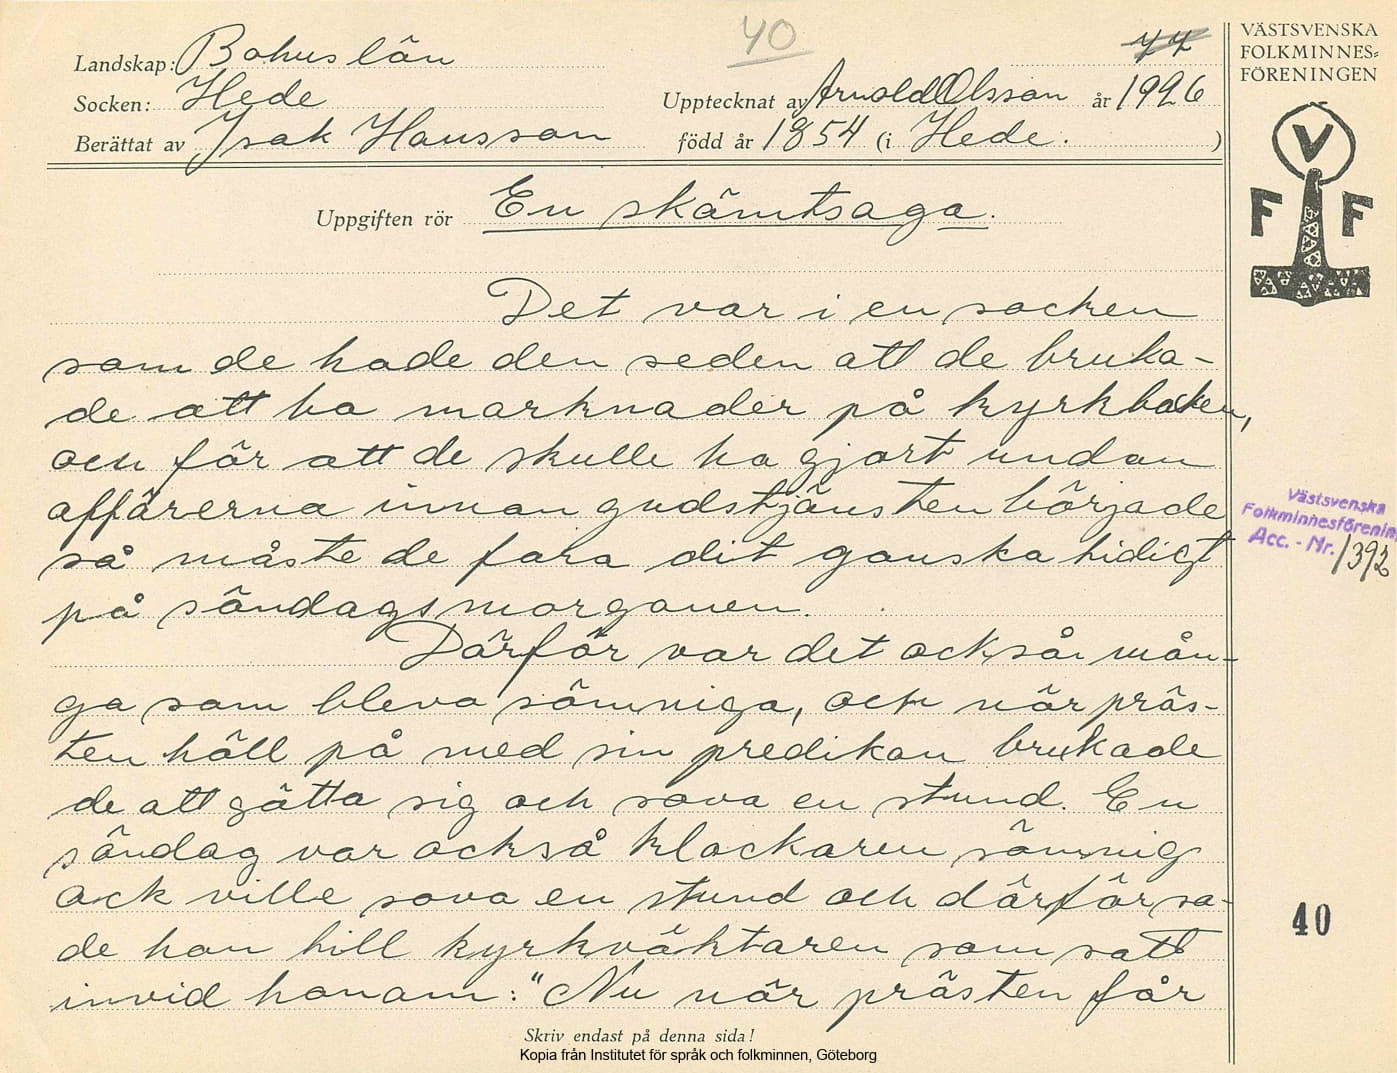 40
77
VÄSTSVENSKA
FOLKMINNES=
FÖRENINGEN
Landskap: Bohuslän
Socken: Hede
Upptecknat av Arnold Olsson år 1926
Berättat av Isak Hansson
född år 1854 (i Hede. )
V
F F
Uppgiften rör En skämtsaga.
Det var i en socken
som de hade den seden att de bruka-
de att ha marknader på kyrkbacken,
och för att de skulle ha gjort undan
affärerna innan gudstjänsten började
så måste de fara dit ganska tidigt
på söndagsmorgonen.
Därför var det också mån-
ga som bleva sömniga, och när präs-
ten höll på med sin predikan brukade
de att gätta sig och sova en stund. En
söndag var också klockaren sömnig
ock ville sova en stund och därför sa-
de han till kyrkväktaren som satt
invid honom: "Nu när prästen får
Västsvenska
Folkminnesförenin
Acc. - Nr. 1392
40
Skriv endast på denna sida!
Kopia från Institutet för språk och folkminnen, Göteborg